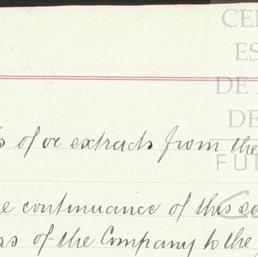 CE
ES
DE
DE
s of or extracts from the
FU
e continuance of this
ss of the Company to the